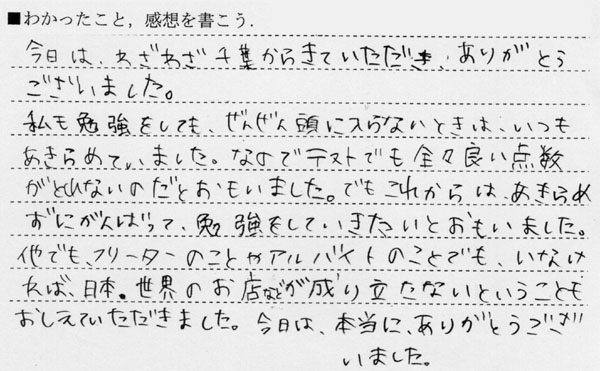 ■わかったこと，感想を書こう．
今日は、わざわざ千葉からきていただき、ありがとう
ございました。
私も勉強をしても、ぜんぜん頭に入らないときは、いつも
あきらめていました。なのでテストでも全々良い点数
がとれないのだとおもいました。でもこれからは、あきらめ
ずにがんばって、勉強をしていきたいとおもいました。
他でも、フリーターのことやアルバイトのことでも、いなけ
れば、日本。世界のお店などが成り立たないということも
おしえていただきました。今日は、本当に、ありがとうござ
いました。